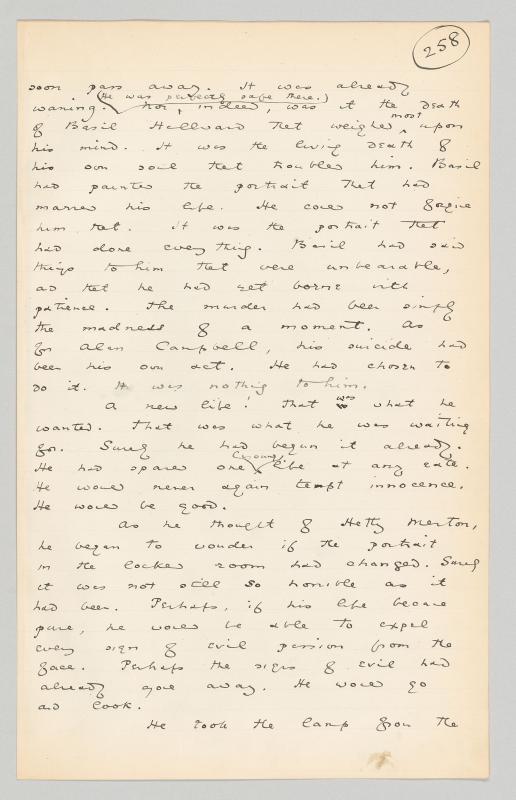 258
soon pass away. It was already
(He was perfectly safe there.)
waning. Nor, indeed, was it the death
most
of Basil Hallward that weighed upon
his mind. It was the living death of
his own soul that troubled him. Basil
had painted the portrait that had
marred his life. He could not forgive
him that. It was the portrait that
had done everything. Basil had said
things to him that were unbearable,
and that he had yet borne with
patience. The murder had been simply
the madness of a moment. As
for Alan Campbell, his suicide had
been his own act. He had chosen to
do it. It was nothing to him.
A new life! That was what he
wanted. That was what he was waiting
for. Surely he had begun it already.
He had spared one life at any rate.
He would never again tempt innocence.
He would be good.
As he thought of Hetty Merton,
he began to wonder if the portrait
in the locked room had changed. Surely
it was not still so horrible as it
had been. Perhaps, if his life became
pure, he would be able to expel
every sign of evil passion from the
face. Perhaps the signs of evil had
already gone away. He would go
and look.
He took the lamp from the